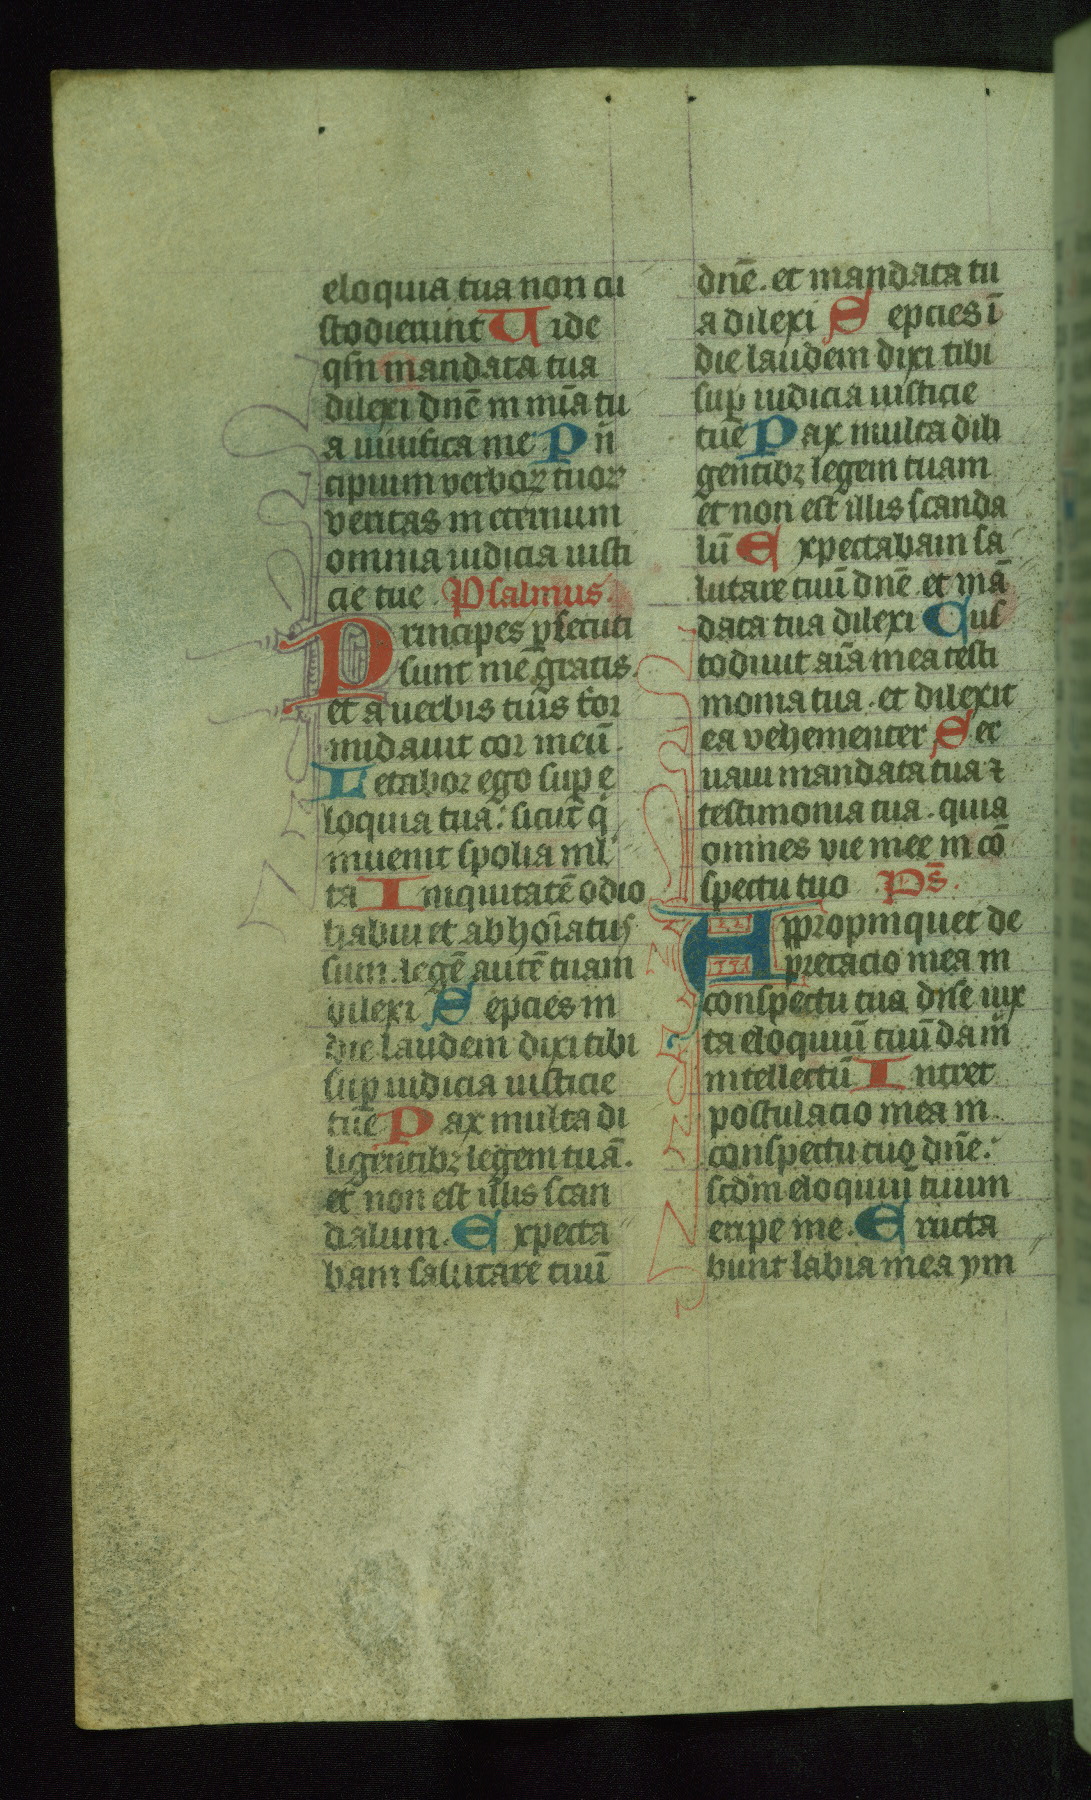 eloquia tua non cu
stodierunt Vide
qm̄ mandata tua
dilexi dnē in mīa tu
a uiuifica me. Prī
cipium verbor tuor
veritas in eternum
omnia iudicia iusti
cie tue. Psalmus.
Principes psecuti
sunt me gratis.
et a uerbis tuis for
midauit cor meū.
Letabor ego sup e
loquia tua: sicut q̇
inuenit spolia ml̓
ta Iniquitatē odio
habui et abhoīatus
sum. legē autē tuam
dilexi Sepcies in
die laudem dixi tibi
sup iudicia iusticie
tue Pax multa di
ligentibꝫ legem tuā.
et non est illis scan
dalum. Expecta
bam salutare tuū
dnē. et mandata tu
a dilexi Sepcies ī
die laudem dixi tibi
sup iudicia iusticie
tue Pax multa dili
gentibꝫ legem tuam
et non est illis scanda
lū Expectabam sa
lutare tuū dnē. et mā
data tua dilexi Cus
todiuit aīa mea testi
monia tua. et dilexit
ea vehementer Ser
uaui mandata tua ⁊
testimonia tua. quia
omnes vie mee in cō
spectu tuo Ps̄.
Appropinquet de
precacio mea in
conspectu tuo dn̄e iux
ta eloquiū tuū da m̄
intellectū Intret
postulacio mea in
conspectu tuo dn̄e:
scdm eloquiū tuum
eripe me. Eructa
bunt labia mea ym